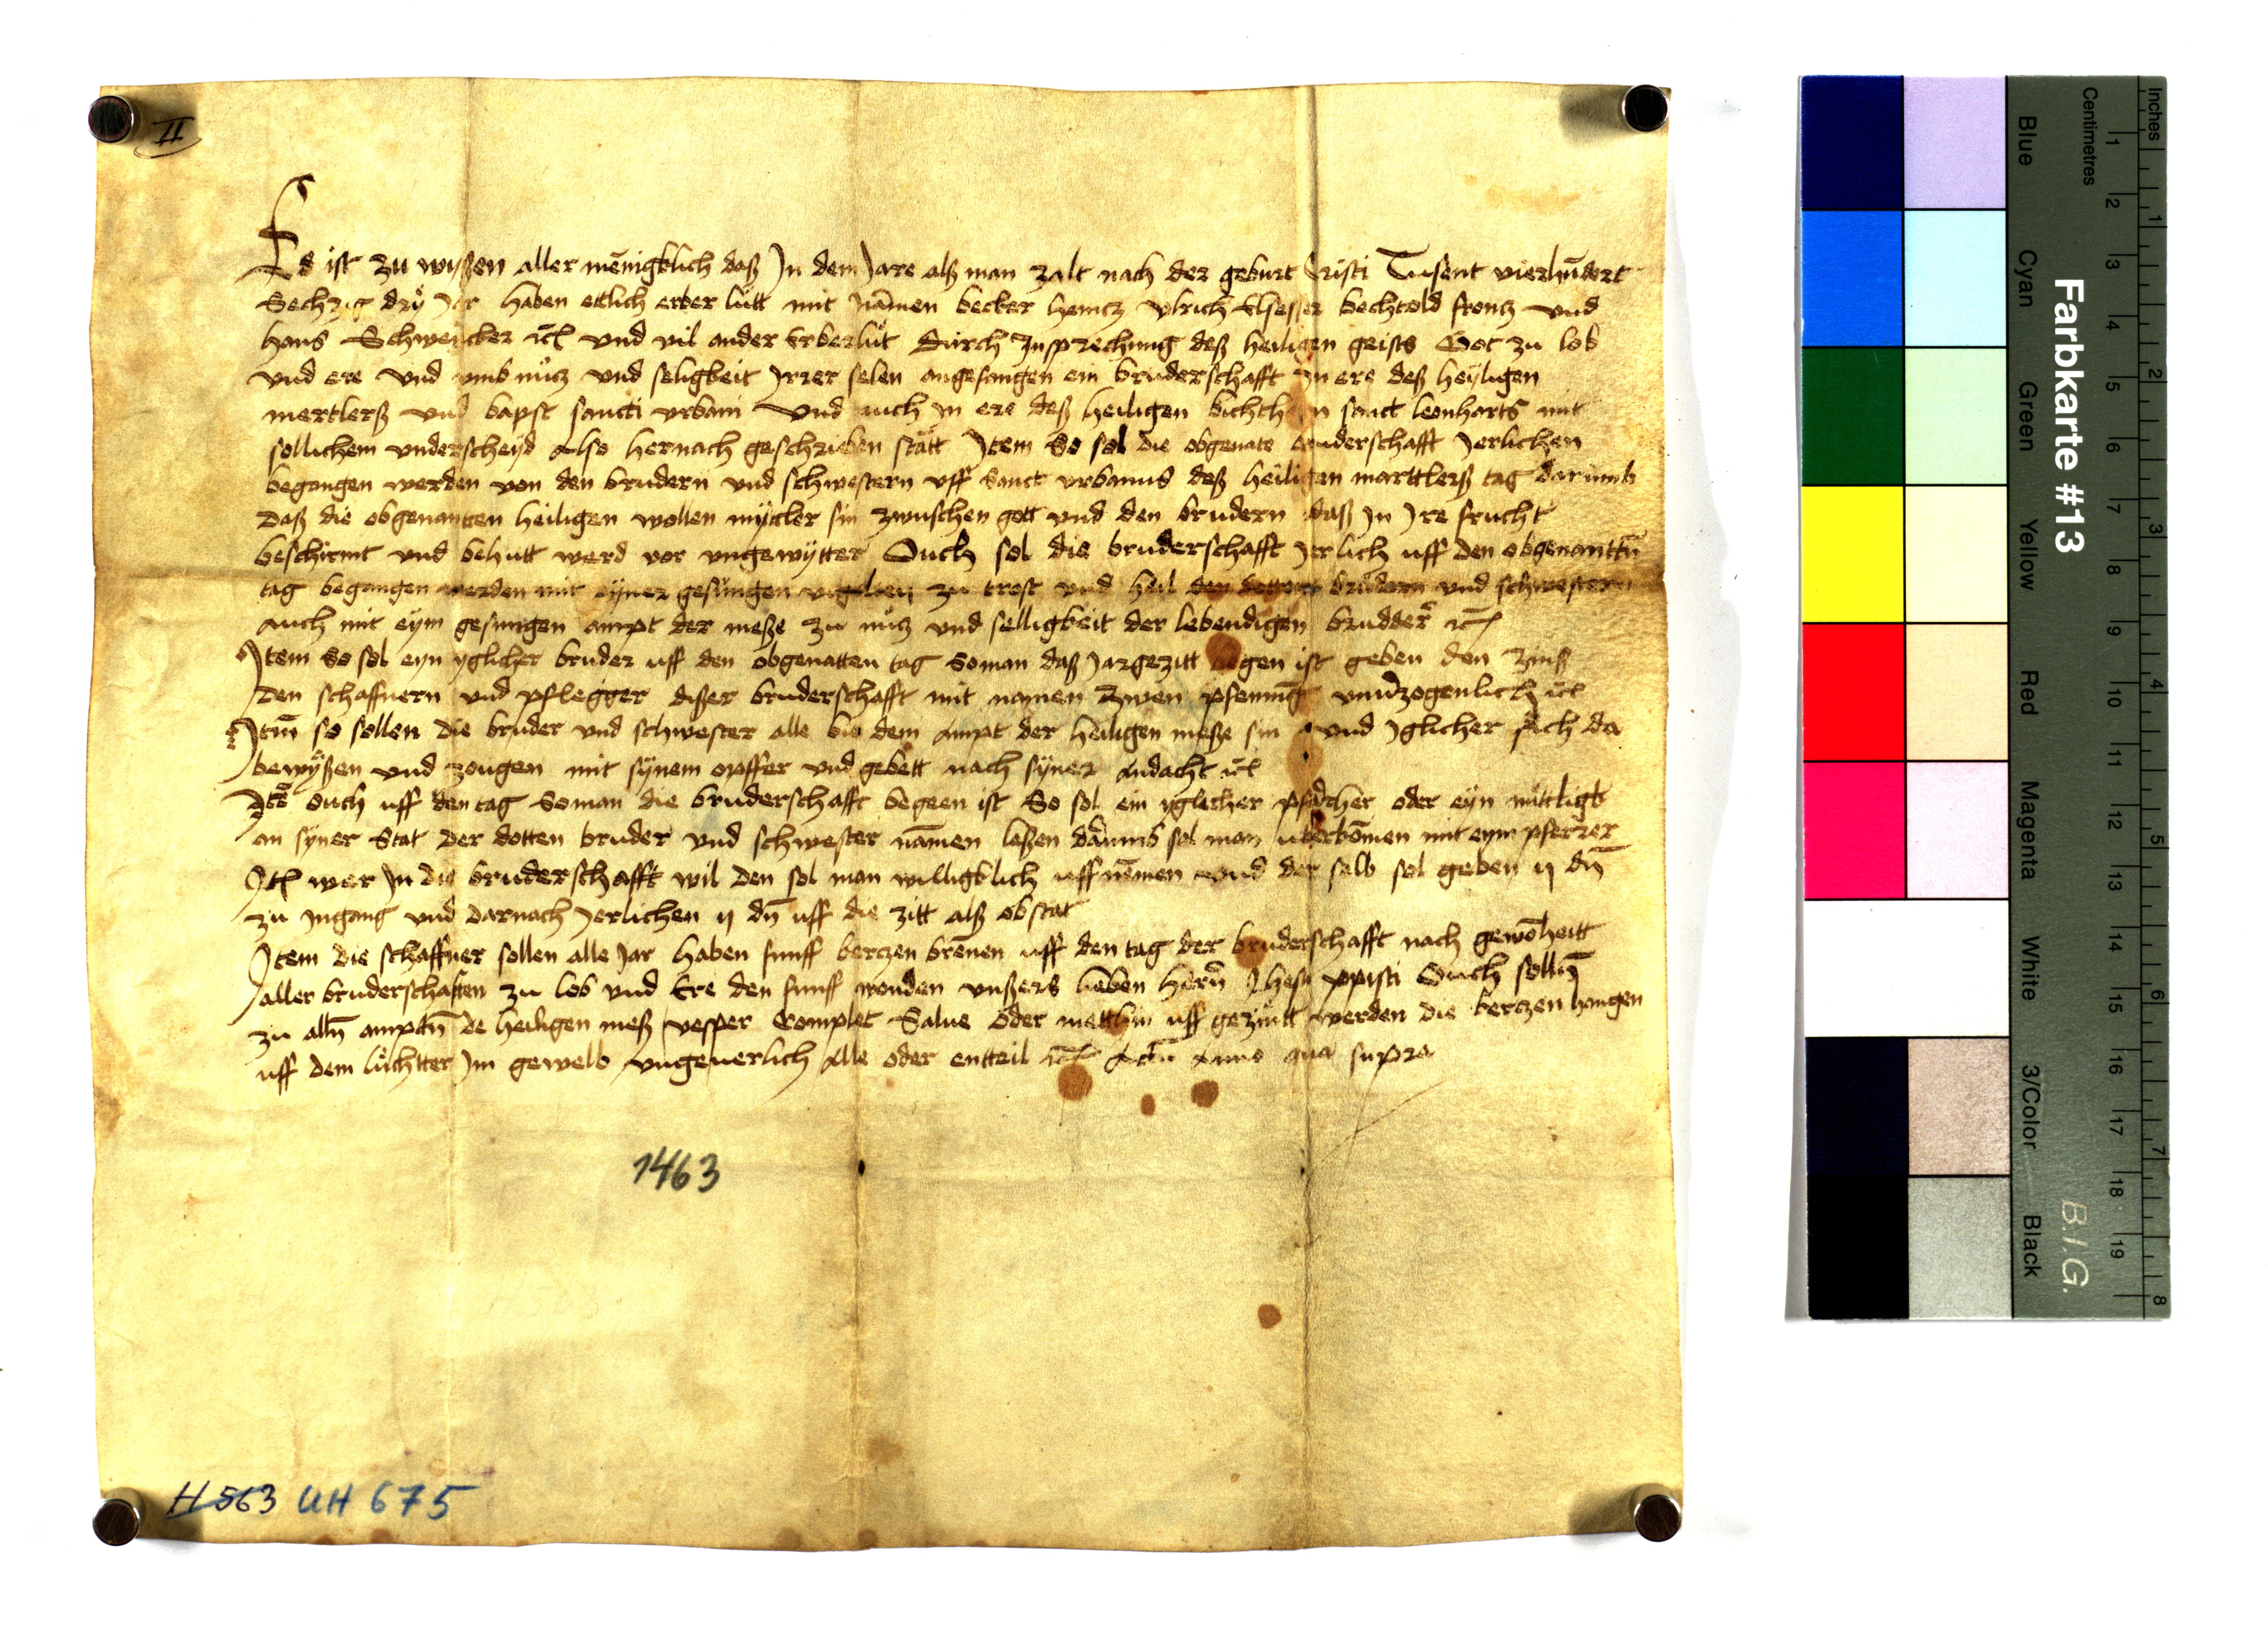 II
Es ist zu wißen aller mēnigklich daß Jn dem Jare alß man zalt nach der geburt Cristi Tusent vierhūdert
Sechzig drÿ Jar haben ettlich erber lütt mit nāmen becker heincz vlrich Elsesser bechtold froncz vnd
hans Schwencker ꝛc̄ vnd vil ander Erber lüt Durch Jnsprechung deß heiligen geists Got zu lob
vnd ere vnd vmb nücz vnd seligkeit Jrrer selen angefangen ein bruderschafft Jn ere deß heÿligen
mertlerß vnd bapst sancti vrbani vnd auch Jn ere deß heiligen sanct leonharts mit
sollichem vnderscheÿd Also hernach geschrieben statt Jtem So sol die obgenāte bruderschafft Jerlichen
begangen werden von den brudern vnd schwestern vff Sanct vrbanus deß heiligen marttlerß tag darumb
Daß die obgenantten heiligen wollen mÿttler sin zwuschen gott vnd den brudern daß Jn Jre frucht
beschirmt vnd behutt werd vor vngewÿtter Ouch sol die bruderschafft Jerlich uff den obgenanttn̄
tag begangen werden mit eÿner gesungen vigilien zu trost vnd heil den dotten brudern vnd schwestern
auch mit eÿm gesungen ampt der meße zu nücz vnd selligkeit der lebendigen brudder ꝛc̄
Jtem So sol eyn yglicher bruder uff den obgenatten tag So man daß Jargezitt begen ist geben den zinß
Den schaffnern vnd pflegger dißer bruderschafft mit namen zwen pfening vnuerzogenlich ꝛc̄
Jtm̄ so sollen die bruder vnd schwester alle bie dem Ampt der heiligen meße sin vnd Jglicher sich da
bewÿßen vnd zougen mit sÿnem opffer vnd gebett nach sÿner Andacht ꝛc̄
Jtē ouch uff den tag So man die bruderschafft begeen ist So sol ein yglicher oder eÿn
an sÿner Stat Der dotten bruder vnd schwester nāmen leßen sol man uberkōmen mit eym pferrer
Jt̄ wer Jn die bruderschafft wil Den sol man willigklich uff nēmen vnd der selb sol geben ij dn̄
zu Jngang vnd Darnach Jerlichen ij dn̄ uff die zitt alß obstat
Jtem die schaffner sollen alle Jar haben funff kerczen brēnen uff den tag der bruderschafft nach gewōheitt
aller bruderschafften zu lob vnd Ere den funff wonden vnßers lieben hern̄ Jhesu xpisti Ouch sollen̄
zu alln̄ amptn̄ de heiligen meß vesper Complet Salue oder mettin uff gezüntt werden die kerczen hangen
uff dem lüchtter Jm gewelb vngeuerlich Alle oder entteil ꝛc̄ Actū Anno qua supra
1463
H 563 UH 675
Farbkarte #13
B.I.G.
Inches
Centimetres
1 2 3 4 5 6 7 8 9 10 11 12 13 14 15 16 17 18 19
1 2 3 4 5 6 7 8
Blue
Cyan
Green
Yellow
Red
Magenta
White
3/Color
Black